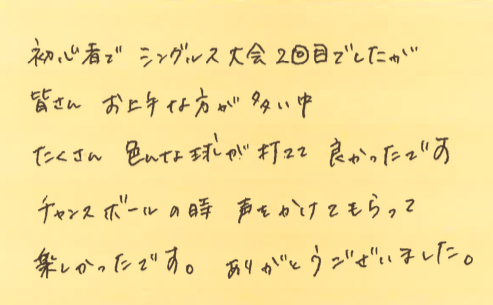 初心者で シングルス大会2回目でしたが
皆さん お上手な方が多い中
たくさん 色んな球が打てて 良かったです
チャンスボールの時 声をかけてもらって
楽しかったです。 ありがとうございました。